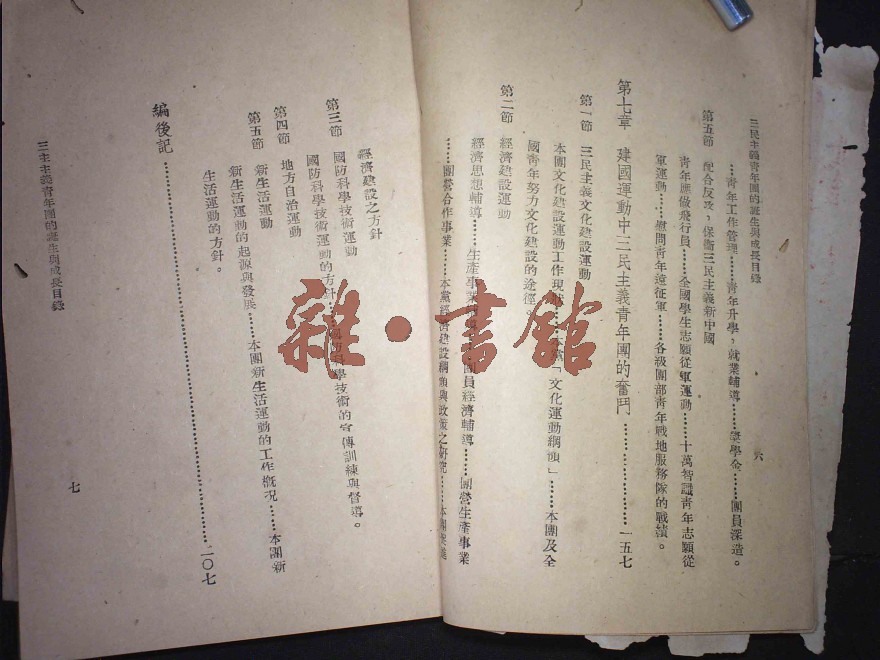 三民主義青年團的誕生與成長目錄
六
……青年工作管理……青年升學，就業輔導……獎學金……團員深造。
第五節　配合反攻，保衛三民主義新中國
青年應做飛行員……全國學生志願從軍運動……十萬智識青年志願從
軍運動……慰問青年遠征軍……各級團部青年戰地服務隊的戰績。
第七章　建國運動中三民主義青年團的奮鬥……一五七
第一節　三民主義文化建設運動
本團文化建設運動工作現狀……本黨「文化運動綱領」……本團及全
國青年努力文化建設的途徑。
第二節　經濟建設運動
經濟思想輔導……生產事業……團員經濟輔導……團營生產事業
……團營合作事業……本黨經濟建設綱領與政策之研究……本團
經濟建設之方針
第三節　國防科學技術運動
國防科學技術運動的方針……國防科學技術的宣傳訓練與督導。
第四節　地方自治運動
第五節　新生活運動
新生活運動的起源與發展……本團新生活運動的工作概況……本團新
生活運動的方針。
編後記……二〇七
三主主義青年團的誕生與成長目錄
七
雜·書館